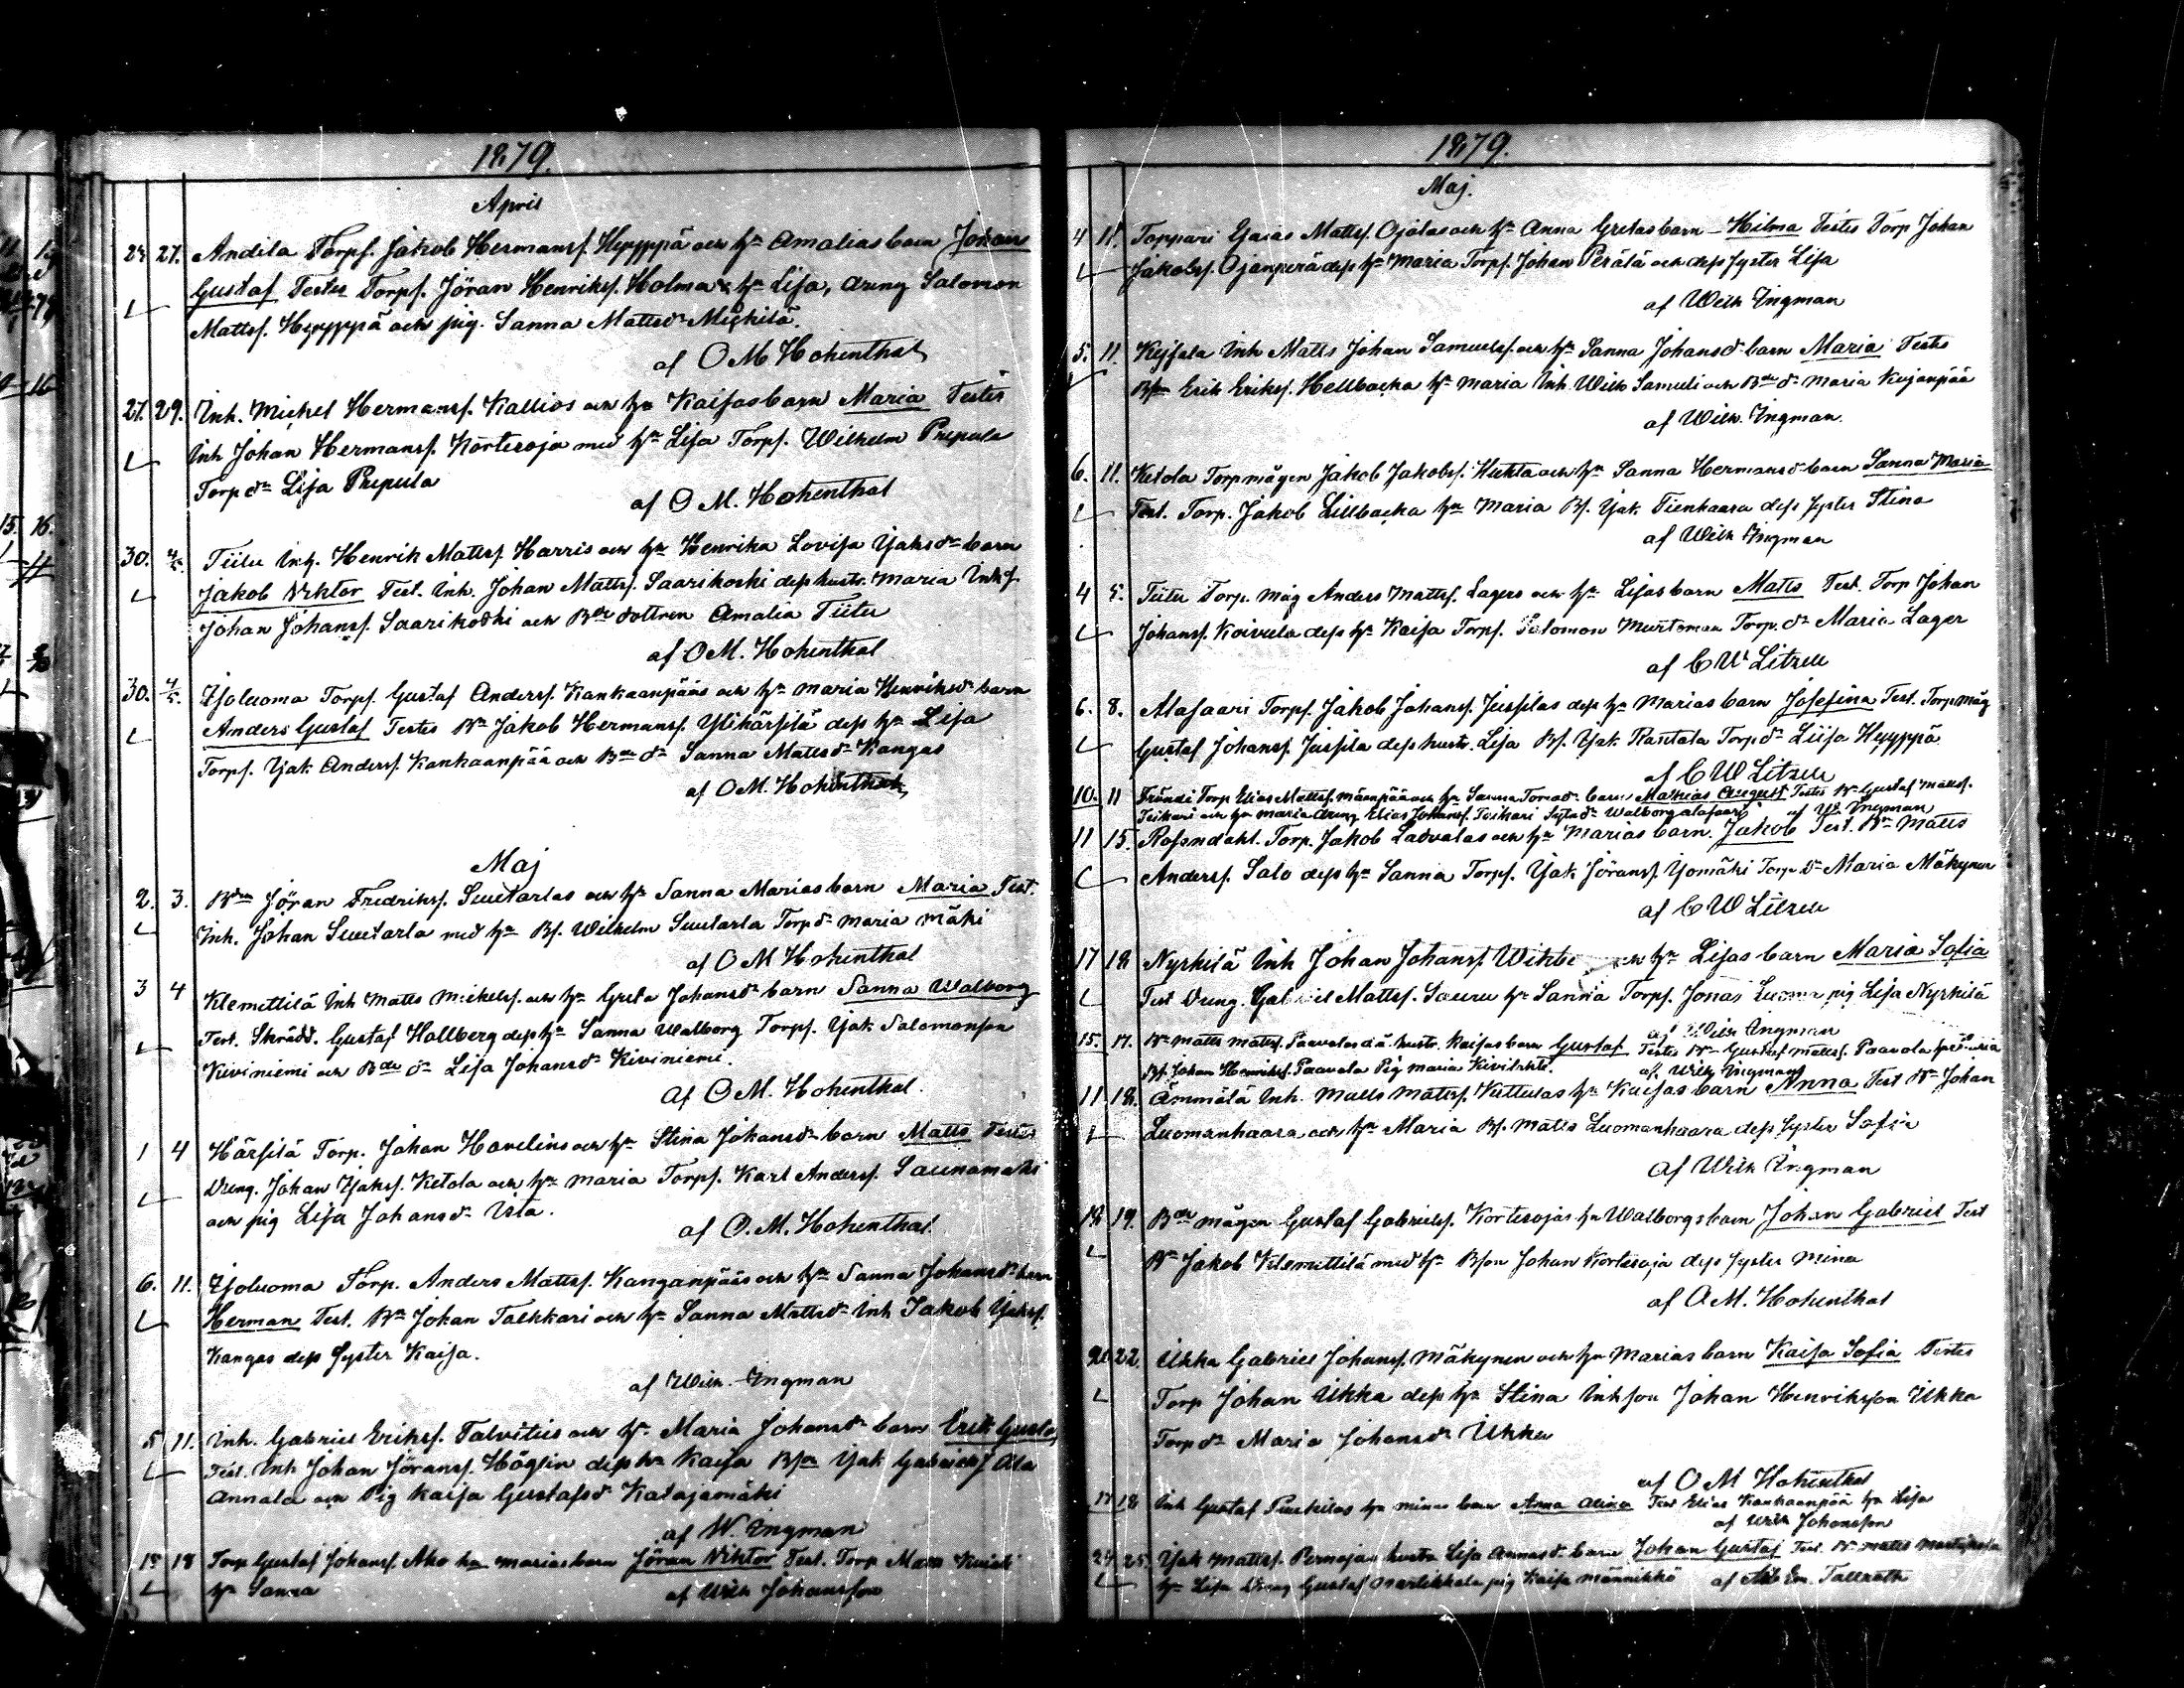 1879.
April
24 27. Andila Torps. Jakob Hermanss. Hyyppä och h. Amalias barn Johan
Gustaf Testes Torps. Jöran Henrikss. Holma h. Lisa, dreng Salomon
Mattss. Hyyppä och pig. Sanna Mattsd. Mickilä.
af O M Hohenthal
27. 29. Inh. Michel Hermanss. Kallios och h. Kaisas barn Maria Testes
Inh Johan Hermanss. Kortesoja med h. Lisa Torps. Wilhelm Prepula
Torp d. Lisa Prepula
af O M. Hohenthal
30. 4/5. Tiitu Inh. Henrik Mattss. Harris och h. Henrika Lovisa Isaksd. barn
Jakob Viktor Test. Inh. Johan Mattss. Saarikoski dess hustr. Maria Inhs.
Johan Johanss. Saarikoski och dottren Amalia Tiitu
af OM. Hohenthal
30. 4/5. Isoluoma Torps. Gustaf Anderss. Kankaanpääs och h. Maria Henriksd. barn
Anders Gustaf Testes Jakob Hermanss. Ylihärsilä dess h. Lisa
Torps. Isak Anderss. Kankaanpää och d. Sanna Mattsd. Kangas
af OM. Hohenthal
Maj
2. 3. Jöran Fredrikss. Suutarlas och h. Sanna Marias barn Maria Test.
Inh. Johan Suutarla med h. Bs. Wilhelm Suutarla Torp d. Maria Mäki
af O M Hohenthal
3 4 Klemettilä Inh Matts Mickelss. och h. Greta Johansd. barn Sanna Walborg
Test. Skrädd. Gustaf Hallberg dess h. Sanna Walborg Torps. Isak Salomonson
Kiviniemi och d. Lisa Johansd. Kiviniemi.
af O M. Hohenthal.
1 4 Härsilä Torp. Johan Havelins och h. Stina Johansd. barn Matts Testes
Dreng. Johan Isakss. Ketola och h. Maria Torps. Karl Anderss. Saunamäki
och pig Lisa Johansd.
af O. M. Hohenthal.
6. 11. Isoluoma Torp. Anders Mattss. Kanganpääs och h. Sanna Johansd. barn
Herman Test. Johan Talkkari och h. Sanna Mattsd. Inh Jakob Isakss.
Kangas dess syster Kaisa.
af Wilh. Ingman
5 11. Inh. Gabriel Erikss. Talvities och h. Maria Johansd. barn Erik Gustaf
Test. Inh Johan Jöranss. Höglin dess h. Kaisa Isak Gabrielss. Ala
Annala och Pig Kaisa Gustafsd. Katajamäki
af W. Ingman
15 18 Torp Gustaf Johanss. Aho h. Marias barn Jöran Viktor Test. Torp
h. Sanna af Wilh Johansson
1879.
Maj.
4 11. Toppari Esaias Mattss. Ojalas och h. Anna Gretas barn Hilma Testes Torp Johan
Jakobss. Ojanperä dess h. Maria Torps. Johan Perälä och dess syster Lisa
af Wilh Ingman
5. 11. Inh Matts Johan Samuelss. och h. Sanna Johansd. barn Maria Testes
Erik Erikss. Hellbacka h. Maria Inh. Wilh Samuli och d. Maria Kujanpää
af Wilh. Ingman.
6. 11. Ketola Torpmågen Jakob Jakobss. Huhta och h. Sanna Hermansd. barn Sanna Maria
Test. Torp. Jakob Lillbacka h. Maria Bs. Isak Tienhaara dess syster Stina
af Wilh Ingman
4 5. Tiitu Torp. måg Anders Mattss. Lagers och h. Lisas barn Matts Test. Torp Johan
Johanss. Koivula dess h. Kaisa Torps. Salomon Murtoman Torp. d. Maria Lager
af C W Litzen
6. 8. Alasaari Torps. Jakob Johanss. Jussilas dess h. Marias barn Josefina Test. Torp måg
Gustaf Johanss. Jussila dess hustr. Lisa Bs. Isak Rantala Torp d. Liisa Hyyppä
af C W Litzen
10. 11 Torp Elias Mattss. Mäenpää och h. Sanna barn Mathias August Testes Gustaf Mattss.
Teikari och h. Maria dreng Elias Johanss. Teikari d. Walborg Alasaari af W. Ingman
11 15. Rosendahl. Torp. Jakob Ladvalas och h. Marias barn Jakob Test. Matts
Anderss. Salo dess h. Sanna Torps. Isak Jöranss. Isomäki Torp d. Maria Mäkynen
af C W Litzen
17 18 Nyrhilä Inh Johan Johanss. och h. Lisas barn Maria Sofia
Test Dreng. Gabriel Mattss. Sauru h. Sanna Torps. Jonas Luoma pig Lisa Nyrhilä
af Wilh Ingman
15. 17. Matts Mattss. Paavolas hustr. Kaisas barn Gustaf Testes Gustaf Mattss. Paavola Maria
Bs. Johan Henrikss. Paavola Pig Maria Kivilehto. af Wilh Ingman
11 18. Ämmälä Inh. Matts Mattss. Kuttulas h. Kaisas barn Anna Test Johan
Luomanhaara och h. Maria Bs. Matts Luomanhaara dess syster Sofia
af Wilh Ingman
18 19. mågen Gustaf Gabrielss. Kortesojas h. Walborgs barn Johan Gabriel Test
Jakob Klemettilä med h. Johan Kortesoja dess syster Mina
af O M. Hohenthal
20 22. Ukka Gabriel Johanss. Mäkynen och h. Marias barn Kaisa Sofia Testes
Torp Johan Ukka dess h. Stina Inhson Johan Henriksson Ukka
Torp d. Maria Johansd. Ukka
af O M Hohenthal
17 18 Inh Gustaf h. Minas barn Anna Alina Test Elias Kankaanpää h. Lisa
af Wilh Johansson
24 25. Isak Mattss. Pernajan hustr Lisa Annasd. barn Johan Gustaf Test. Matts
h. Lisa Dreng Gustaf pig Kaisa Männikkö af Em. Tallroth